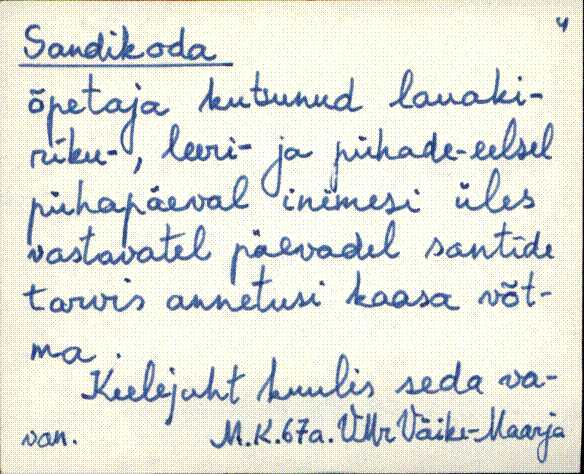 4
Sandikoda
õpetaja kutsunud lauaki-
riku-, leeri- ja pühade-eelsel
pühapäeval inimesi üles
vastavatel päevadel santide
tarvis annetusi kaasa võt-
ma.
Keelejuht kuulis seda va-
van. M.K.67a. VMr Väike-Maarja